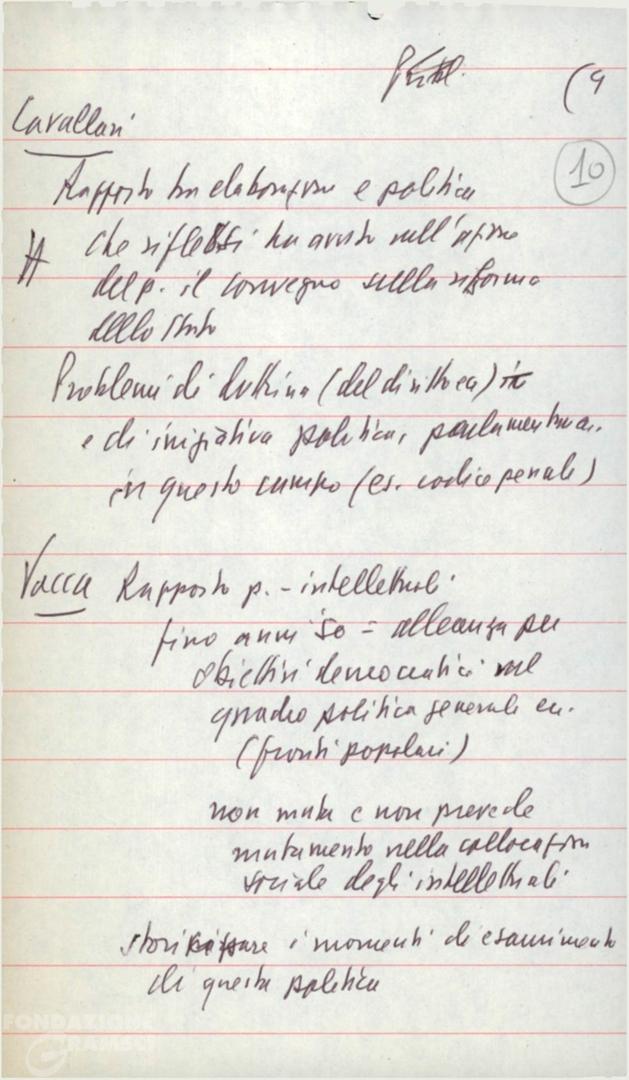 (9
10
Cavallari
Rapporto tra elaborazione e politica
che riflessi ha avuto sull'azione
del p. il convegno sulla riforma
dello Stato
Problemi di dottrina (del diritto ecc)
e di iniziativa politica, parlamentare.
in questo campo (es. codice penale)
Vacca Rapporto p. - intellettuali
fino anni '50 = alleanza per
obiettivi democratici nel
quadro politica generale
(fronti popolari)
non muta e non prevede
mutamento nella collocazion
sociale degli intellettuali
storicizzare i momenti di esaurimento
di questa politica
FONDAZIONE
GRAMSCI